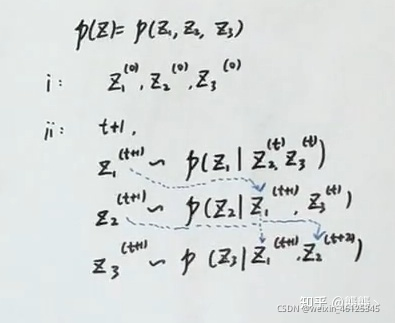 p(Z)= p(Z₁, Z₂, Z₃)
i: Z₁⁽⁰⁾, Z₂⁽⁰⁾, Z₃⁽⁰⁾
ii: t+1,
Z₁⁽ᵗ⁺¹⁾ ~ p(Z₁ | Z₂⁽ᵗ⁾, Z₃⁽ᵗ⁾)
Z₂⁽ᵗ⁺¹⁾ ~ p(Z₂ | Z₁⁽ᵗ⁺¹⁾, Z₃⁽ᵗ⁾)
Z₃⁽ᵗ⁺¹⁾ ~ p(Z₃ | Z₁⁽ᵗ⁺¹⁾, Z₂⁽ᵗ⁺²⁾)
知乎 @熊熊
CSDN @weixin_46125345